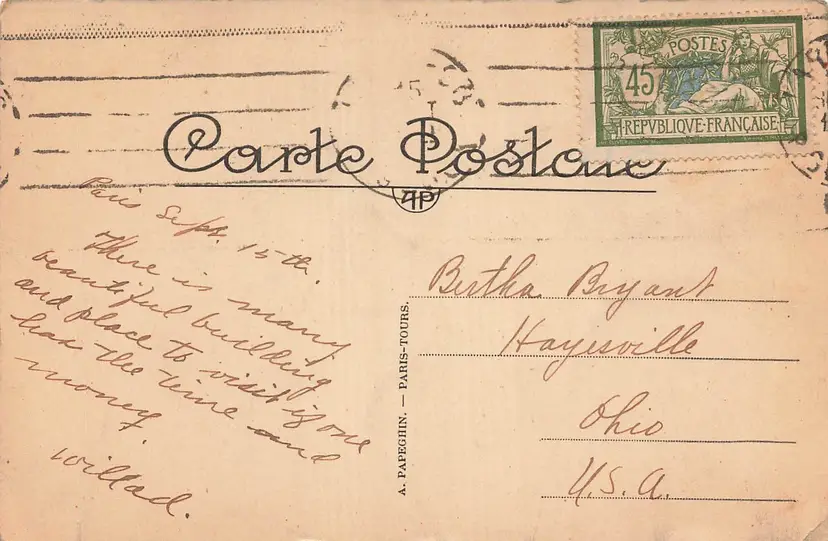 POSTES
45
REPVBLIQUE·FRANÇAISE
Carte Postale
AP
Paris Sept. 15th.
There is many
beautiful building
and place to visit if one
has the time and
money.
Willad.
A. PAPEGHIN. — PARIS-TOURS.
Bertha Bryant
Hayesville
Ohio
U.S.A.